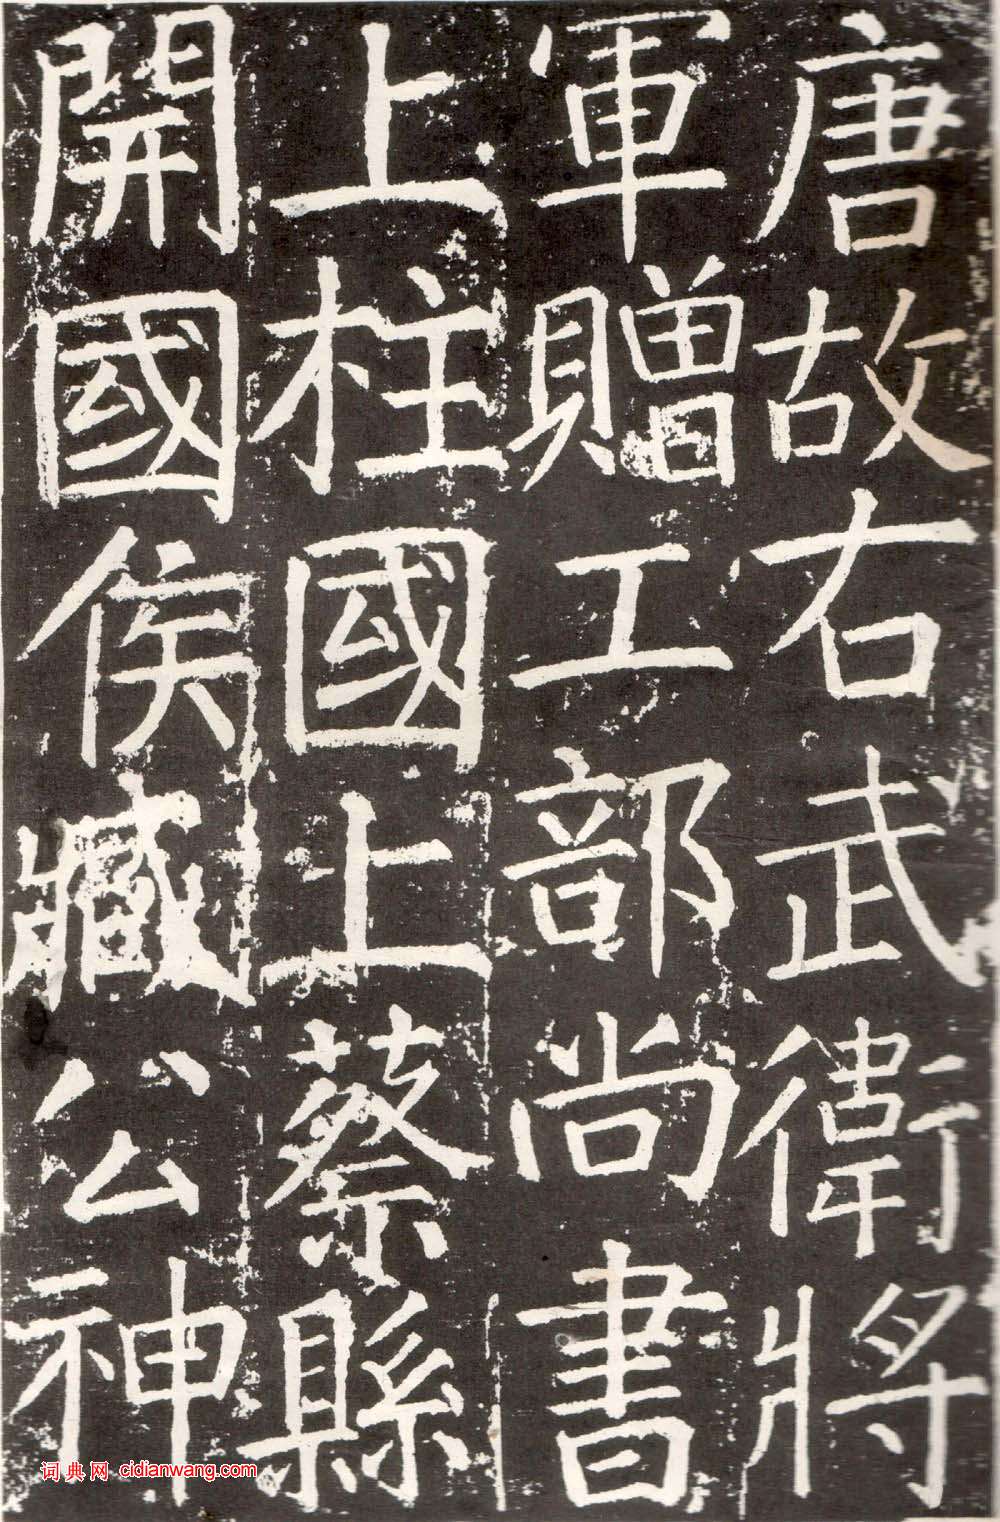 唐故右武衛將
軍贈工部尚書
上柱國上蔡縣
開國侯臧公神
词典网 cidianwang.com